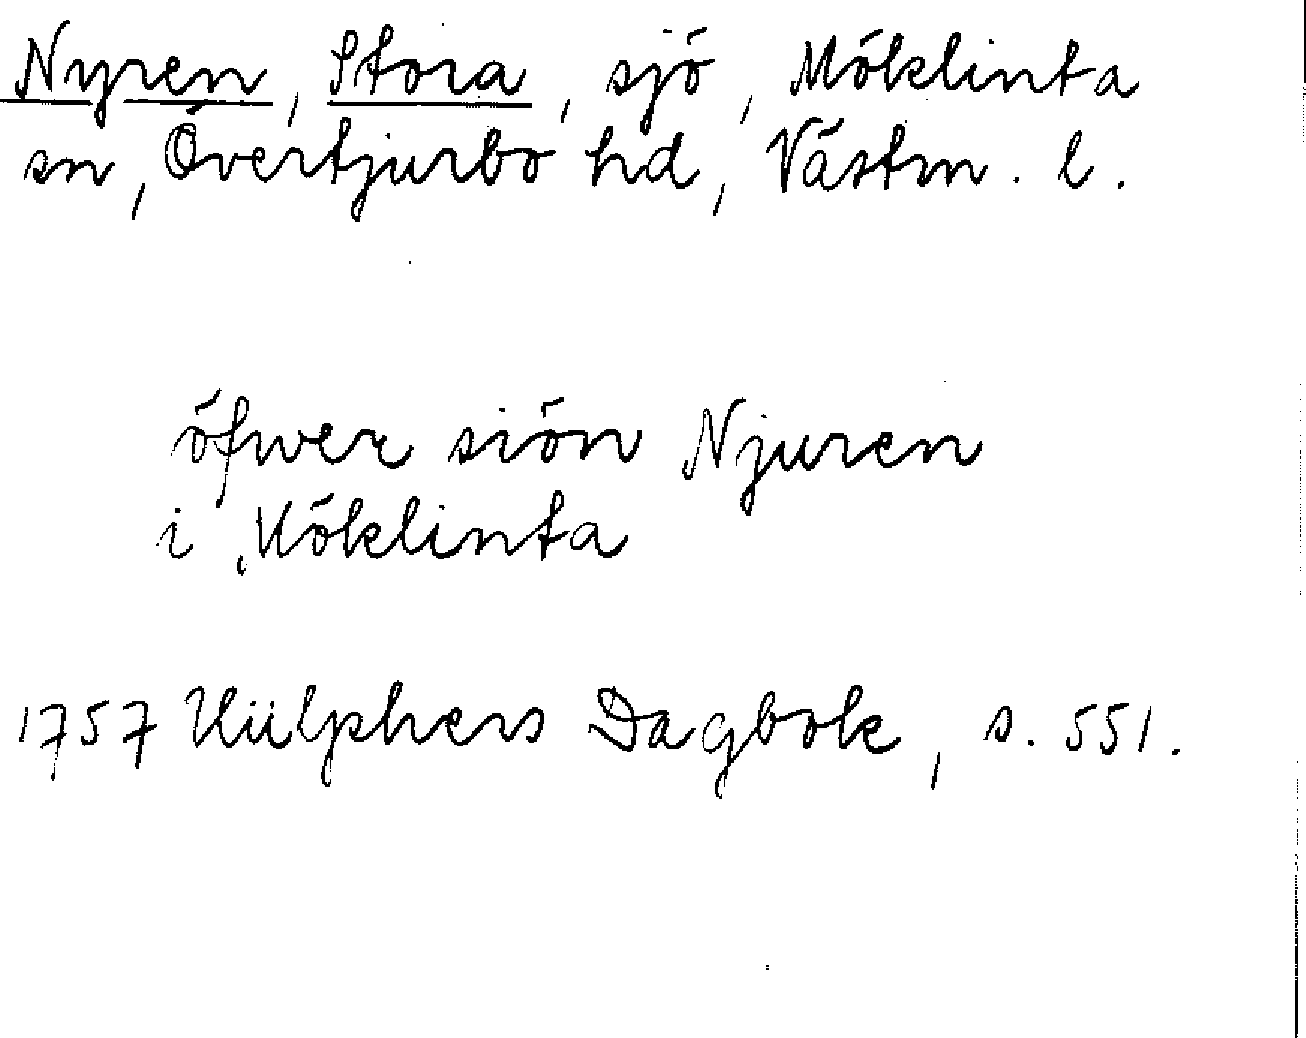 Nyren, Stora, sjö, Möklinta
sn, Övertjurbo hd, Västm. l.
öfwer siön Njuren
i Möklinta
1757 Hülphers Dagbok, s. 551.